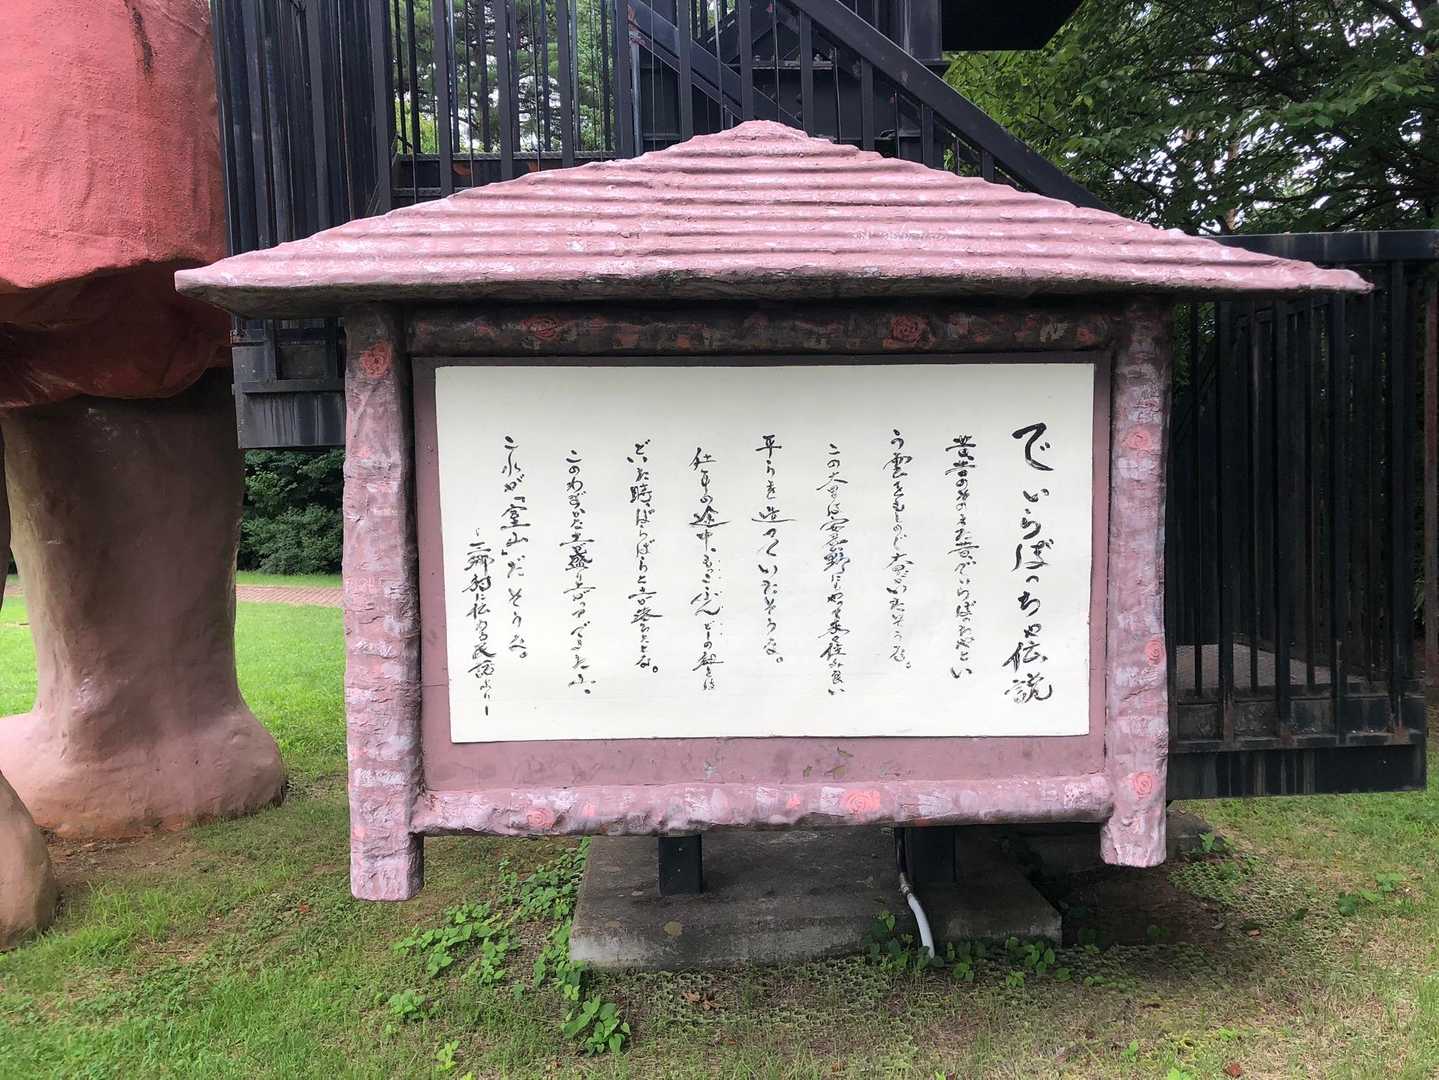 でいらぼっちゃ伝説
昔昔のそのまた昔、でいらぼっちゃとい
う雲をもしのぐ大男がいたそうな。
この大男は安曇野にもやって来て住み良い
平らを造っていたそうな。
仕事の途中、もっこがどこかの
どいた時、ばらばらと音落ちとな。
このわずかな土盛り、よってできた山、
これが「室山」だそうな。
〜三郷村に伝わる民話より〜